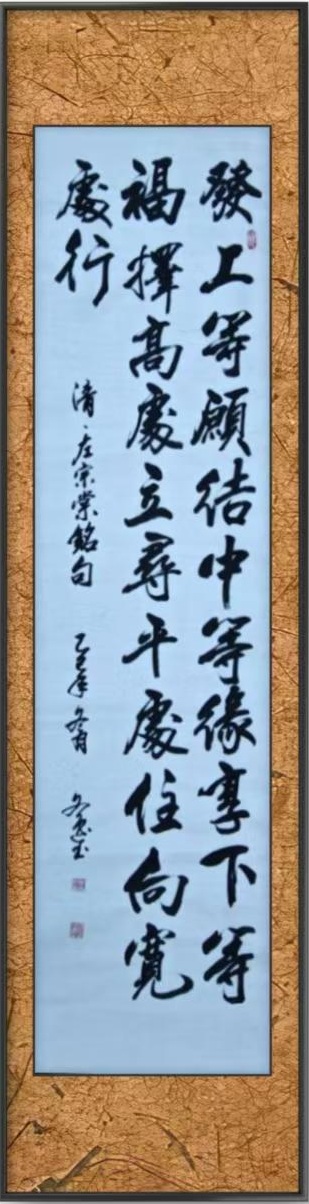 發上等願结中等緣享下等
福擇高處立尋平處住向寬
處行
清、左宗棠銘句
乙巳年冬月